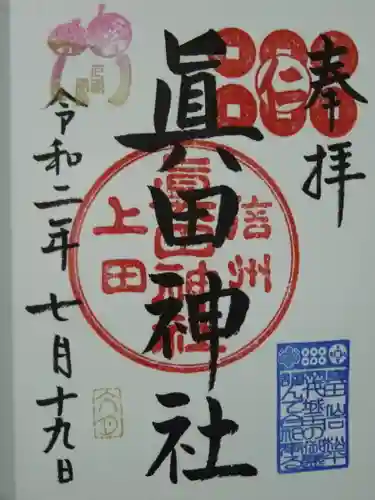 奉拝
眞田神社
信州
上田
眞田神社
令和二年七月十九日